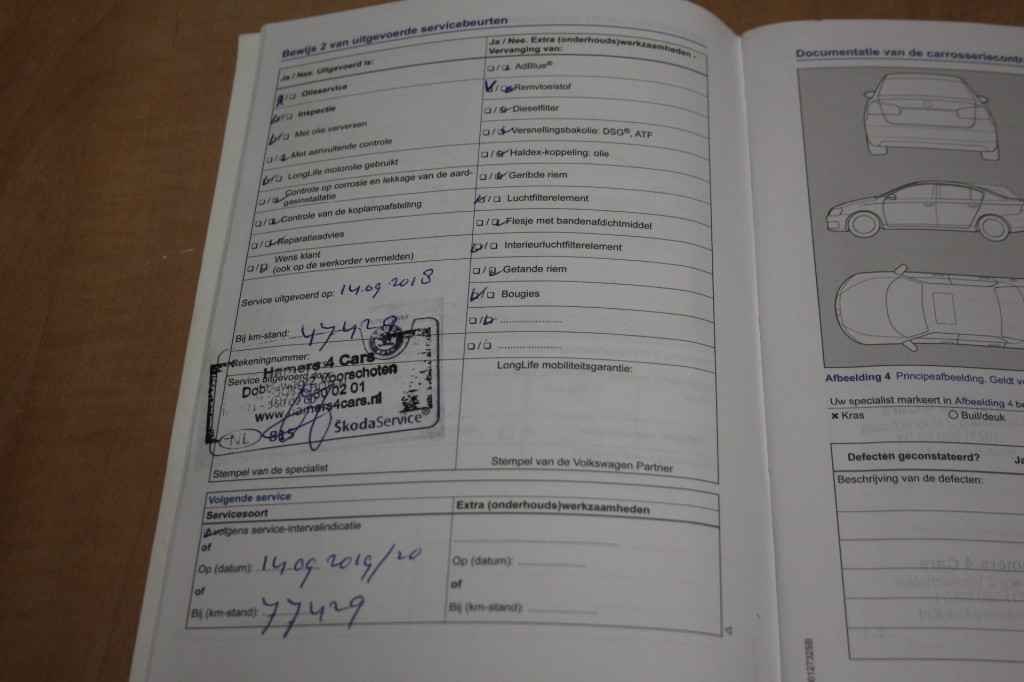 Bewijs 2 van uitgevoerde servicebeurten
Ja / Nee. Uitgevoerd is:
Olieservice
Inspectie
Met olie verversen
Met aanvullende controle
LongLife motorolie gebruikt
Controle op corrosie en lekkage van de aard-
gasinstallatie
Controle van de koplampafstelling
Reparatieadvies
Wens klant
(ook op de werkorder vermelden)
Service uitgevoerd op: 14.09 2018
Bij km-stand: 47429
Rekeningnummer:
Service uitgevoerd door
Hamers 4 Cars
Voorschoten
02 01
www.hamers4cars.nl
NL 815 ŠkodaService
Stempel van de specialist
Ja / Nee. Extra (onderhouds)werkzaamheden .
Vervanging van:
AdBlue®
Remvloeistof
Dieselfilter
Versnellingsbakolie: DSG®, ATF
Haldex-koppeling: olie
Geribde riem
Luchtfilterelement
Flesje met bandenafdichtmiddel
Interieurluchtfilterelement
Getande riem
Bougies
LongLife mobiliteitsgarantie:
Stempel van de Volkswagen Partner
Volgende service
Servicesoort
volgens service-intervalindicatie
of
Op (datum): 14.09.2019/20
of
Bij (km-stand): 77429
Extra (onderhouds)werkzaamheden
Op (datum):
of
Bij (km-stand):
Documentatie van de carrosseriecontr
Afbeelding 4 Principeafbeelding. Geldt v
Uw specialist markeert in Afbeelding 4 be
× Kras Buil/deuk
Defecten geconstateerd? Ja
Beschrijving van de defecten: